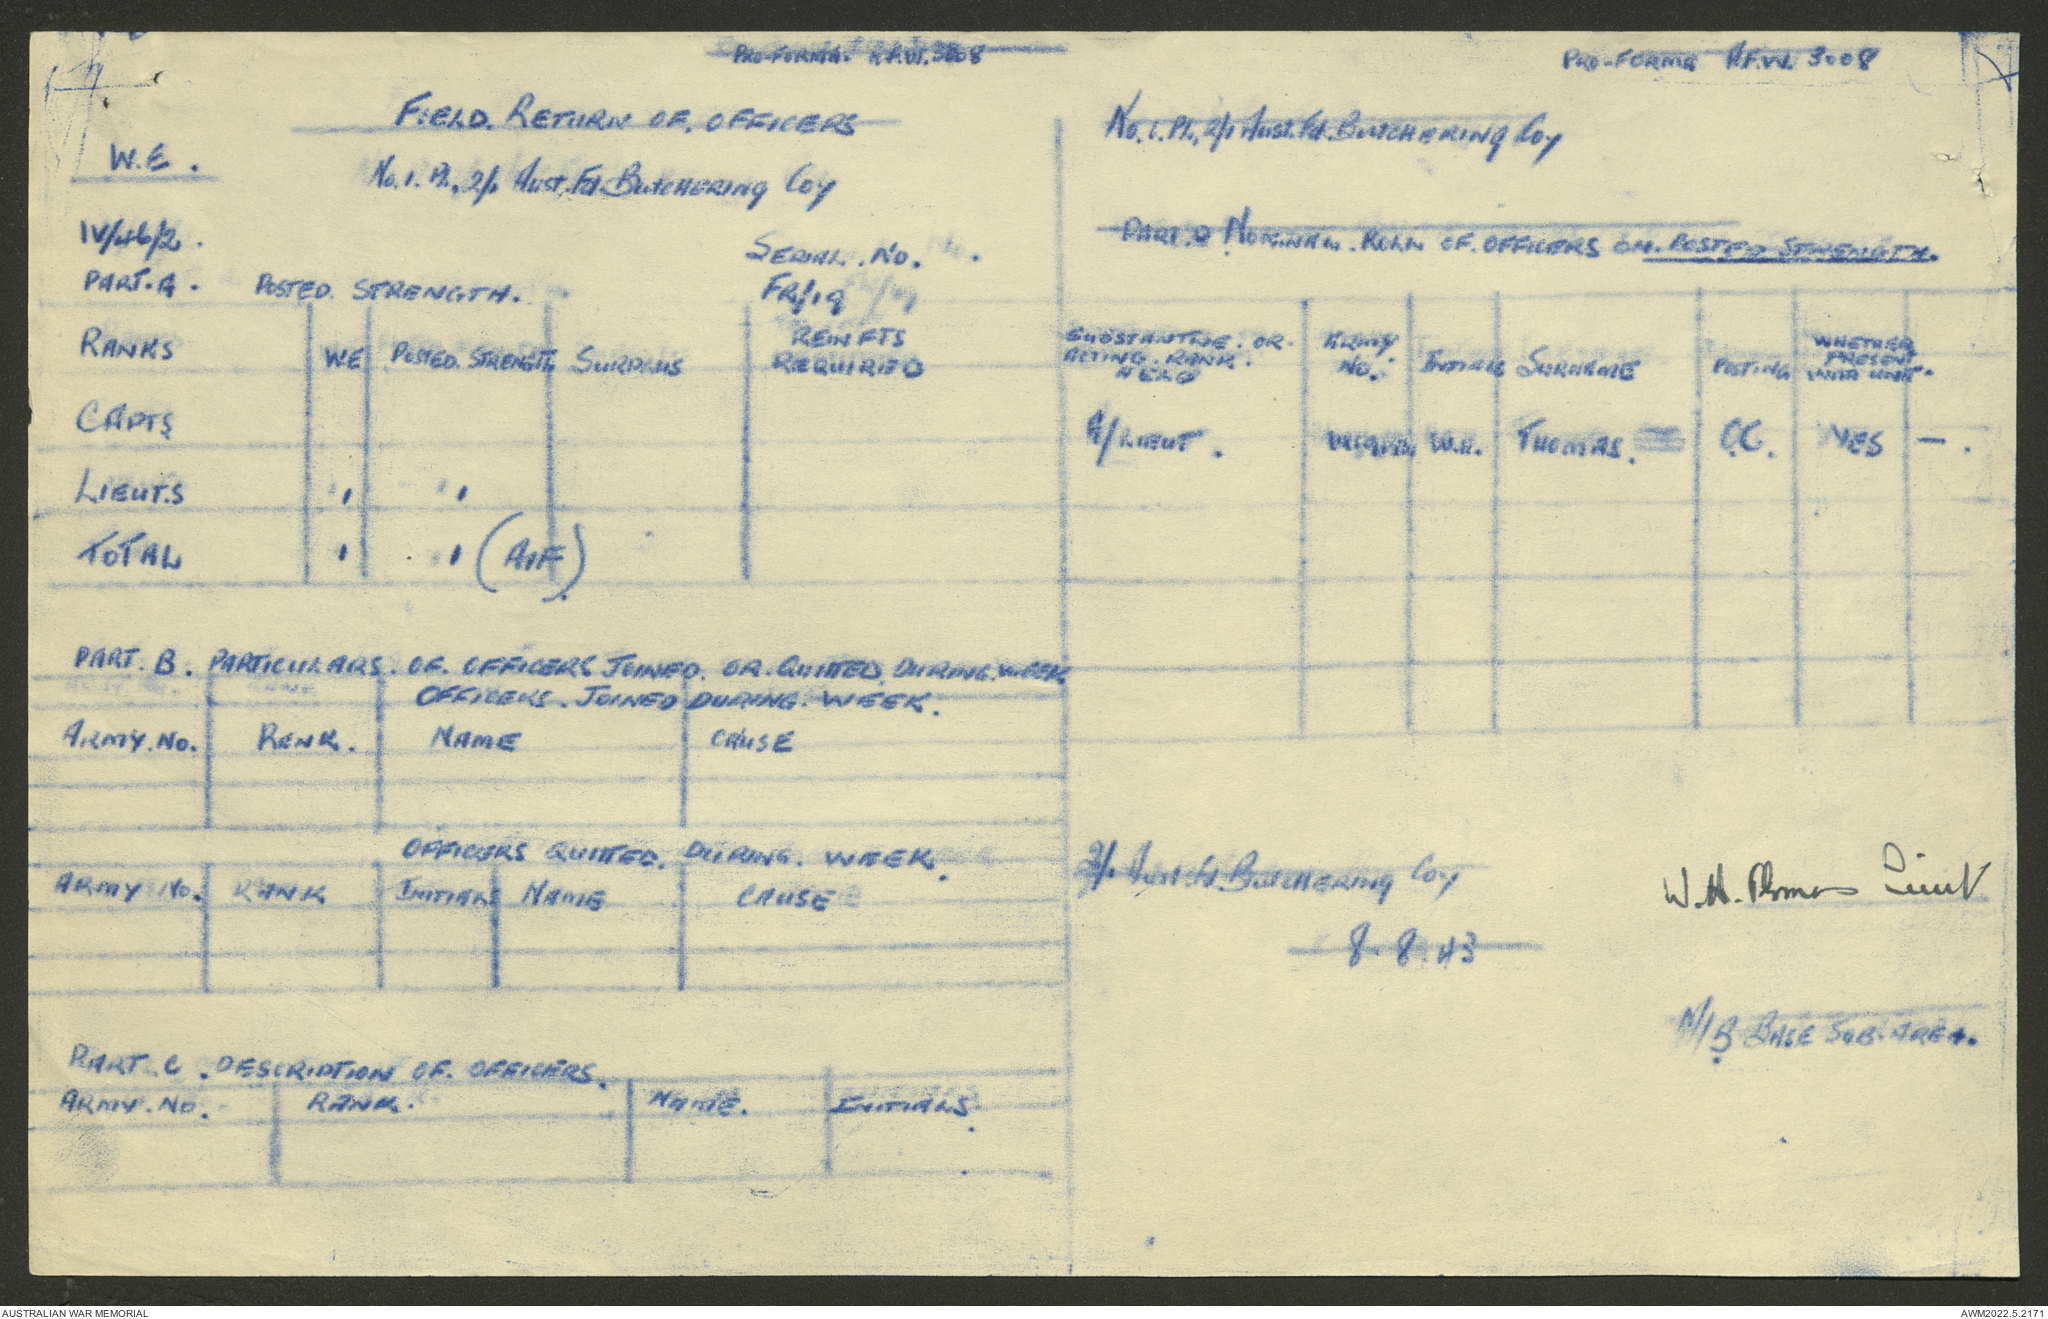 PRO-FORMA. A.F.W. 3008
FIELD. RETURN OF. OFFICERS
W.E.
No. 1. Pl., 2/1 Aust. Fd. BUTCHERING Coy
IV/46/2.
SERIAL. No.
PART. A. POSTED. STRENGTH.
FR/19
RANKS WE POSTED. STRENGTH SURPLUS REINFTS REQUIRED
CAPTS
LIEUTS 1 1
TOTAL 1 1 (AIF)
PART. B. PARTICULARS. OF. OFFICERS JOINED. OR. QUITTED. DURING. WEEK.
OFFICERS. JOINED DURING. WEEK.
ARMY. No. RANK. NAME CAUSE
OFFICERS QUITTED. DURING. WEEK.
ARMY No. RANK INITIALS NAME CAUSE
PART. C. DESCRIPTION OF. OFFICERS.
ARMY. NO. RANK. NAME. INITIALS.
PRO-FORMA A.F.W. 3008
No. 1. Pl., 2/1 Aust. Fd. BUTCHERING Coy
PART. D NOMINAL. ROLL OF. OFFICERS ON. POSTED STRENGTH.
SUBSTANTIVE. OR. ACTING. RANK. HELD ARMY No. INITIALS SURNAME POSTING WHETHER PRESENT WITH UNIT.
A/LIEUT. W.H. THOMAS. O.C. YES —.
2/1 Aust Fd BUTCHERING Coy
W. H. Thomas Lieut
8. 8. 43
BASE SUB. AREA.
AUSTRALIAN WAR MEMORIAL
AWM2022.5.2171